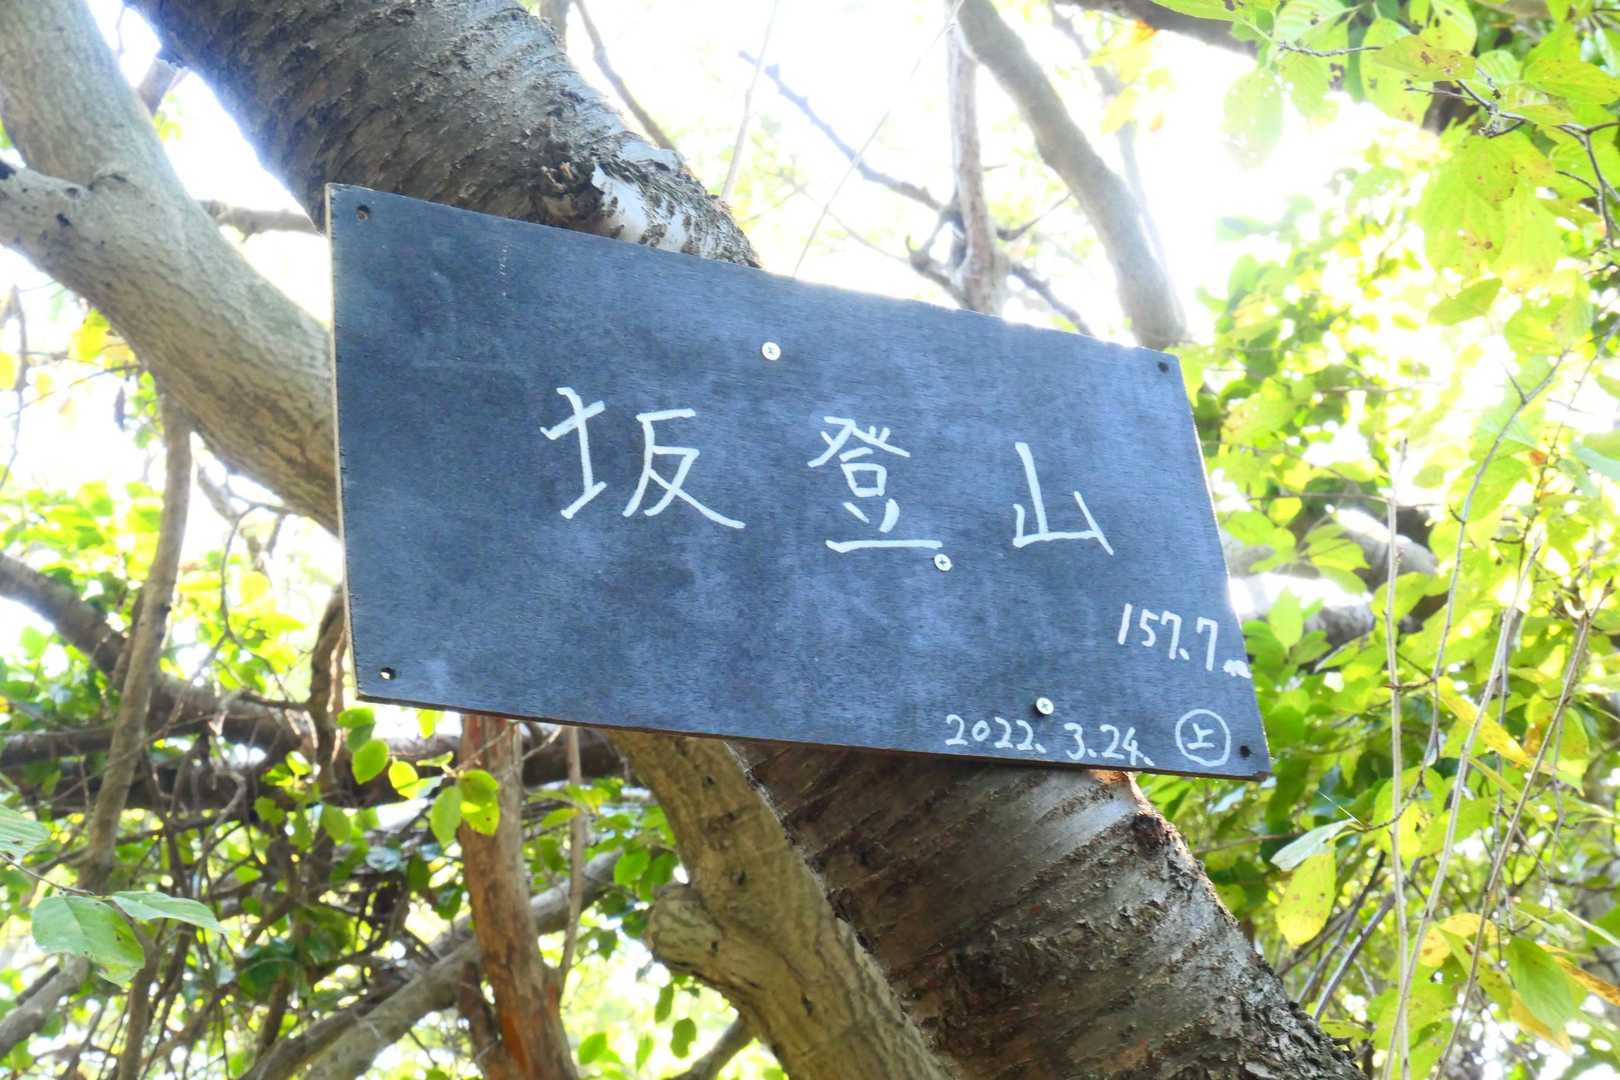 坂登山
157.7m
2022.3.24. 上